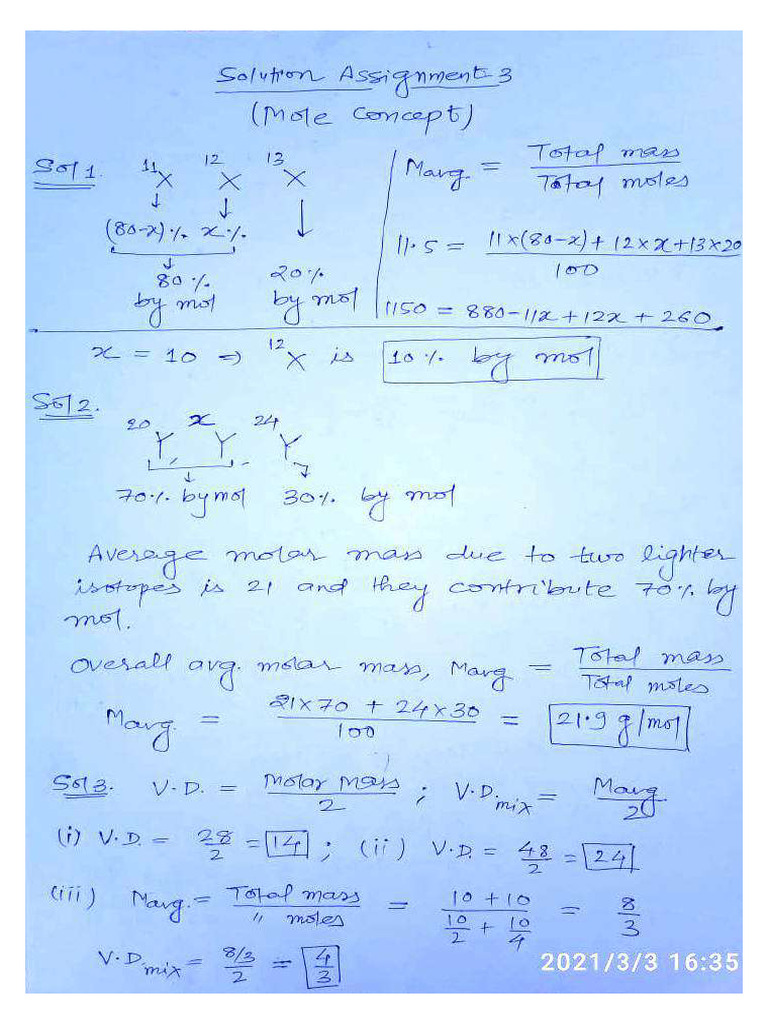 Solution Assignment-3
(Mole Concept)
Sol 1. ¹¹X ¹²X ¹³X
(80-x)% x%
80% 20%
by mol by mol
Mavg. = Total mass / Total moles
11.5 = 11×(80-x) + 12×x + 13×20 / 100
1150 = 880-11x+12x + 260
x = 10 ⇒ ¹²X is 10% by mol
Sol 2.
²⁰Y ˣY ²⁴Y
70% by mol 30% by mol
Average molar mass due to two lighter
isotopes is 21 and they contribute 70% by
mol.
Overall avg. molar mass, Mavg = Total mass / Total moles
Mavg. = 21×70 + 24×30 / 100 = 21.9 g/mol
Sol 3. V.D. = Molar Mass / 2 ; V.D.mix = Mavg. / 2
(i) V.D. = 28/2 = 14 ; (ii) V.D. = 48/2 = 24
(iii) Mavg. = Total mass / " moles = 10 + 10 / 10/2 + 10/4 = 8/3
V.D.mix = 8/3 / 2 = 4/3
2021/3/3 16:35